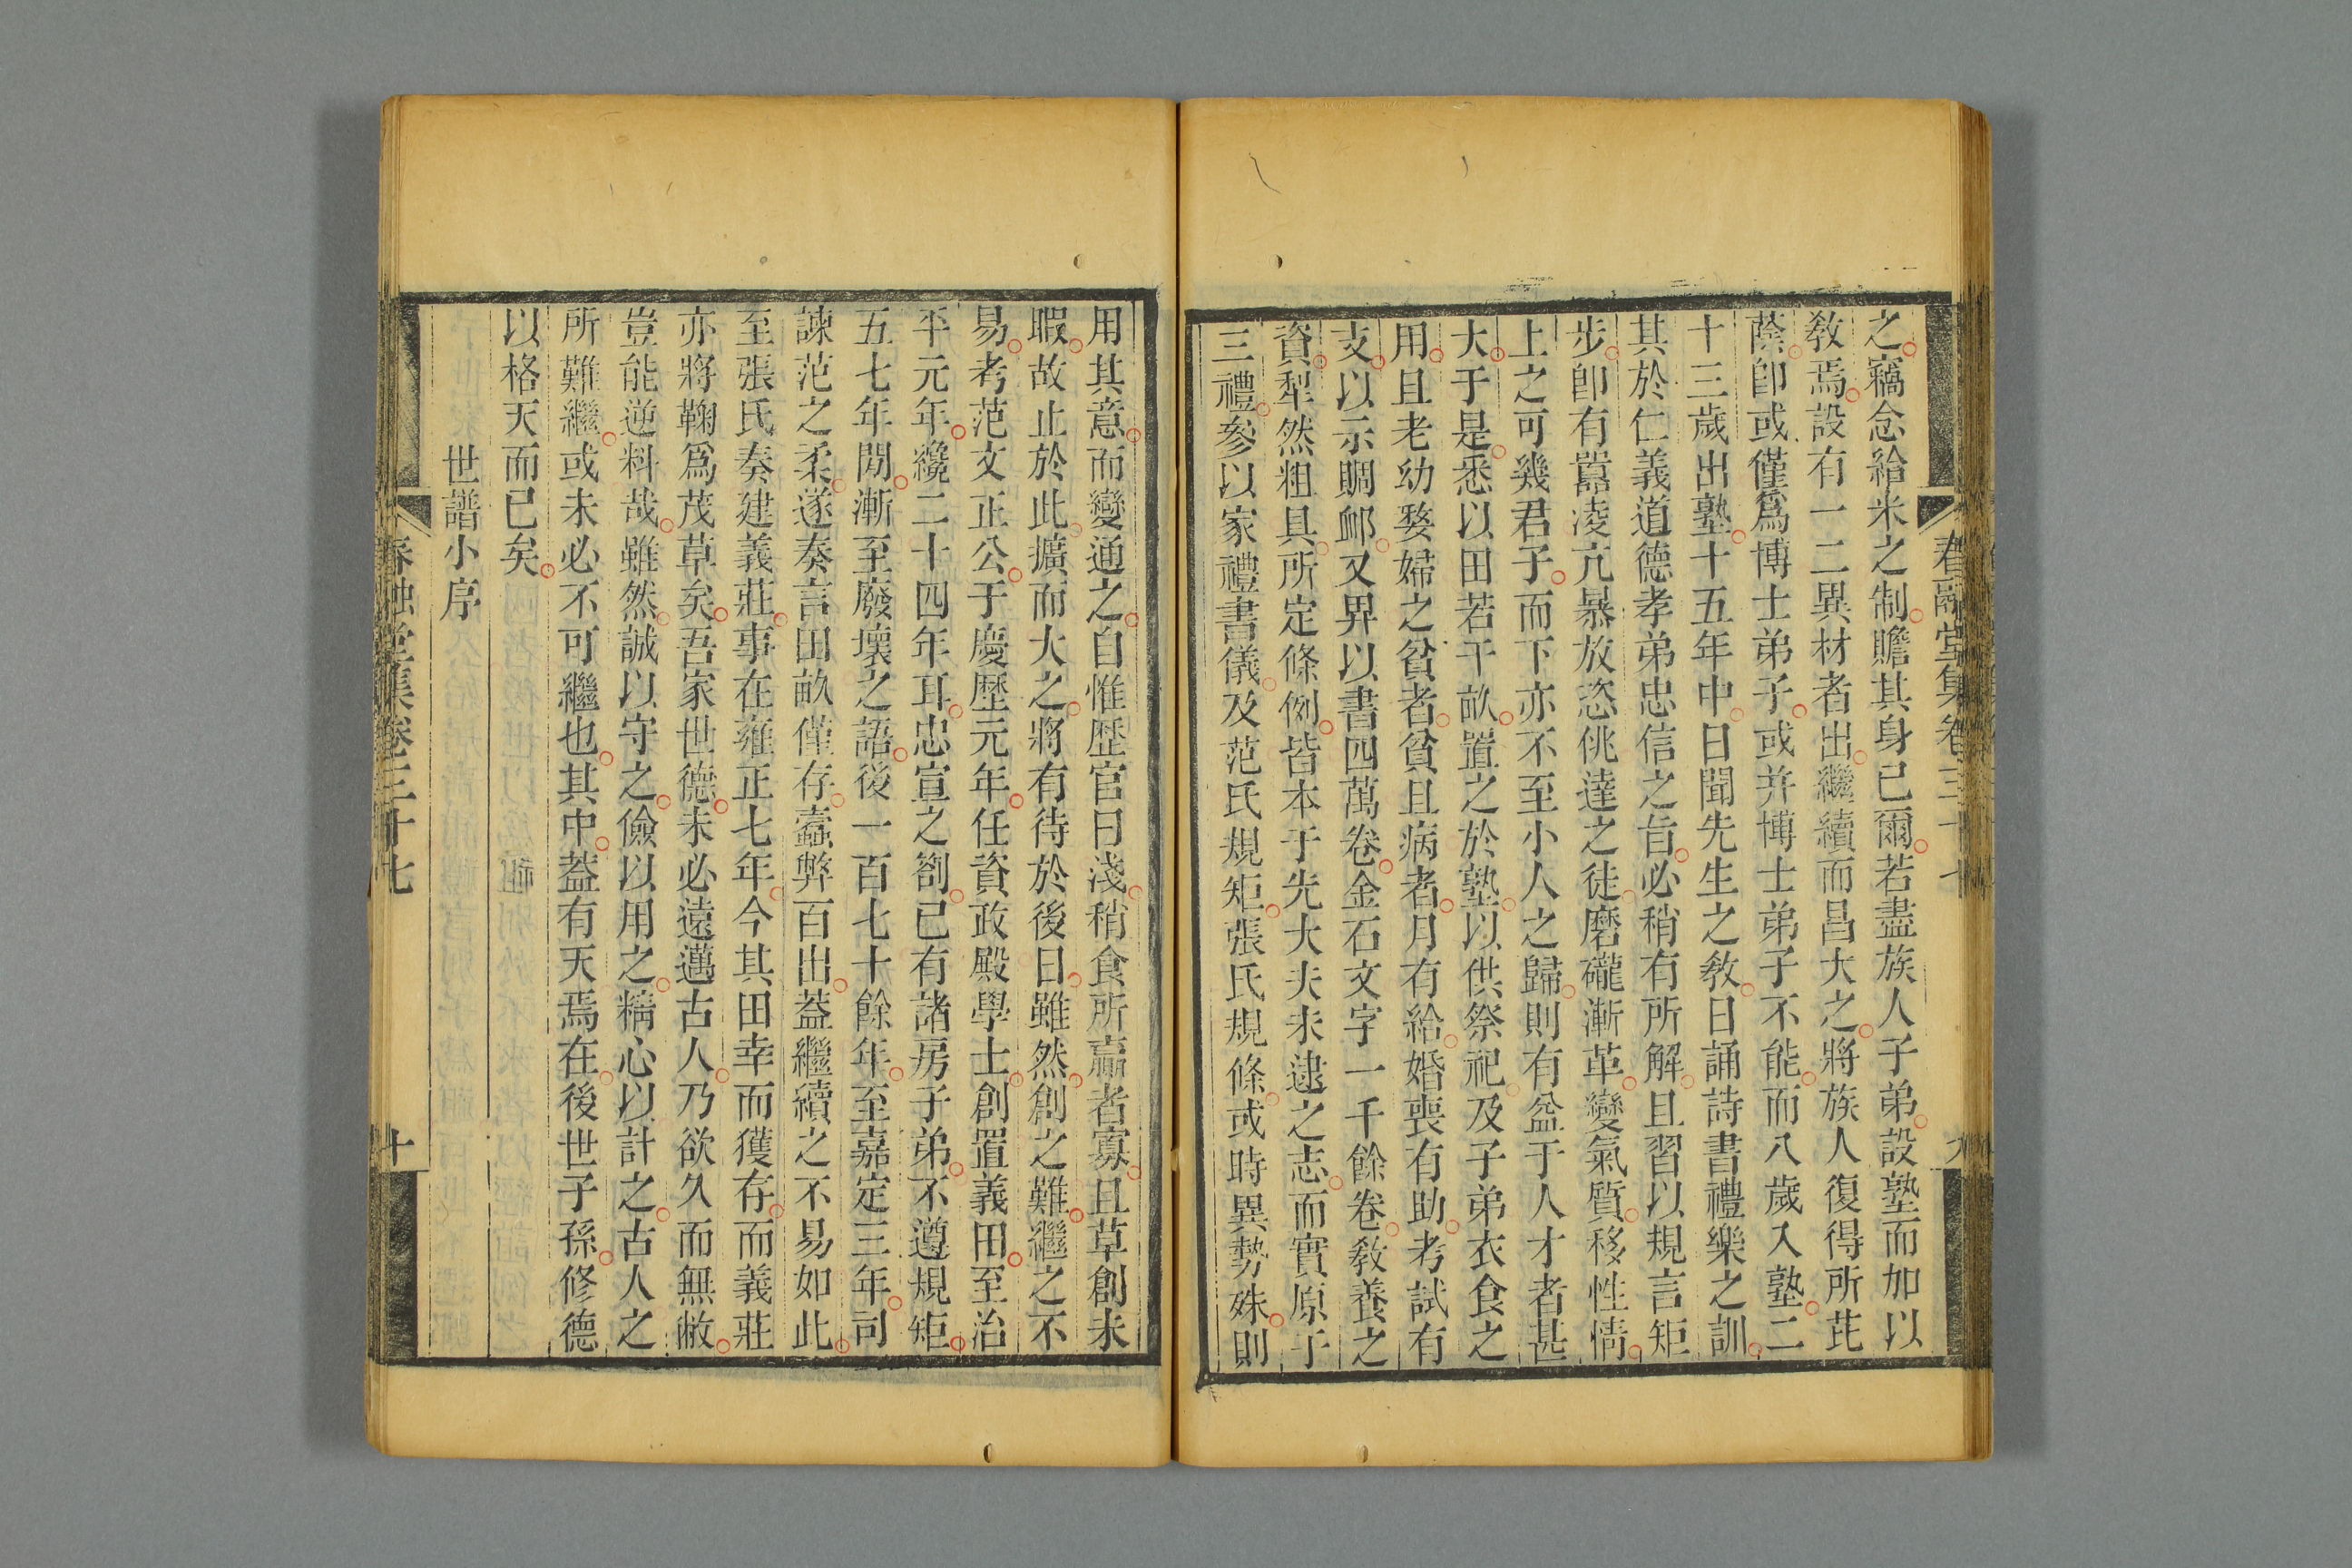 之竊念給米之制贍其身已爾若盡族人子弟設塾而加以
敎焉設有一二異材者出繼續而昌大之將族人復得所芘
蔭卽或僅爲博士弟子或并博士弟子不能而八歲入塾二
十三歲出塾十五年中日聞先生之敎日誦詩書禮樂之訓
其於仁義道德孝弟忠信之旨必稍有所解且習以規言矩
步卽有嚚凌亢暴放恣佻達之徒磨礲漸革變氣質移性情
上之可幾君子而下亦不至小人之歸則有益于人才者甚
大于是悉以田若干畝置之於塾以供祭祀及子弟衣食之
用且老幼嫠婦之貧者貧且病者月有給婚喪有助考試有
支以示賙䘏又畀以書四萬卷金石文字一千餘卷敎養之
資犁然粗具所定條例皆本于先大夫未逮之志而實原于
三禮參以家禮書儀及范氏規矩張氏規條或時異勢殊則
春融堂集卷三十七
九
用其意而變通之自惟歴官日淺稍食所贏者寡且草創未
暇故止於此擴而大之將有待於後日雖然創之難繼之不
易考范文正公于慶歴元年任資政殿學士創置義田至治
平元年纔二十四年耳忠宣之劄已有諸房子弟不遵規矩
五七年閒漸至廢壞之語後一百七十餘年至嘉定三年司
諫范之柔遂奏言田畝僅存蠹弊百出葢繼續之不易如此
至張氏奏建義莊事在雍正七年今其田幸而獲存而義莊
亦將鞠爲茂草矣吾家世德未必遠邁古人乃欲久而無敝
豈能逆料哉雖然誠以守之儉以用之精心以計之古人之
所難繼或未必不可繼也其中葢有天焉在後世子孫修德
以格天而已矣
世譜小序
春融堂集卷三十七
十